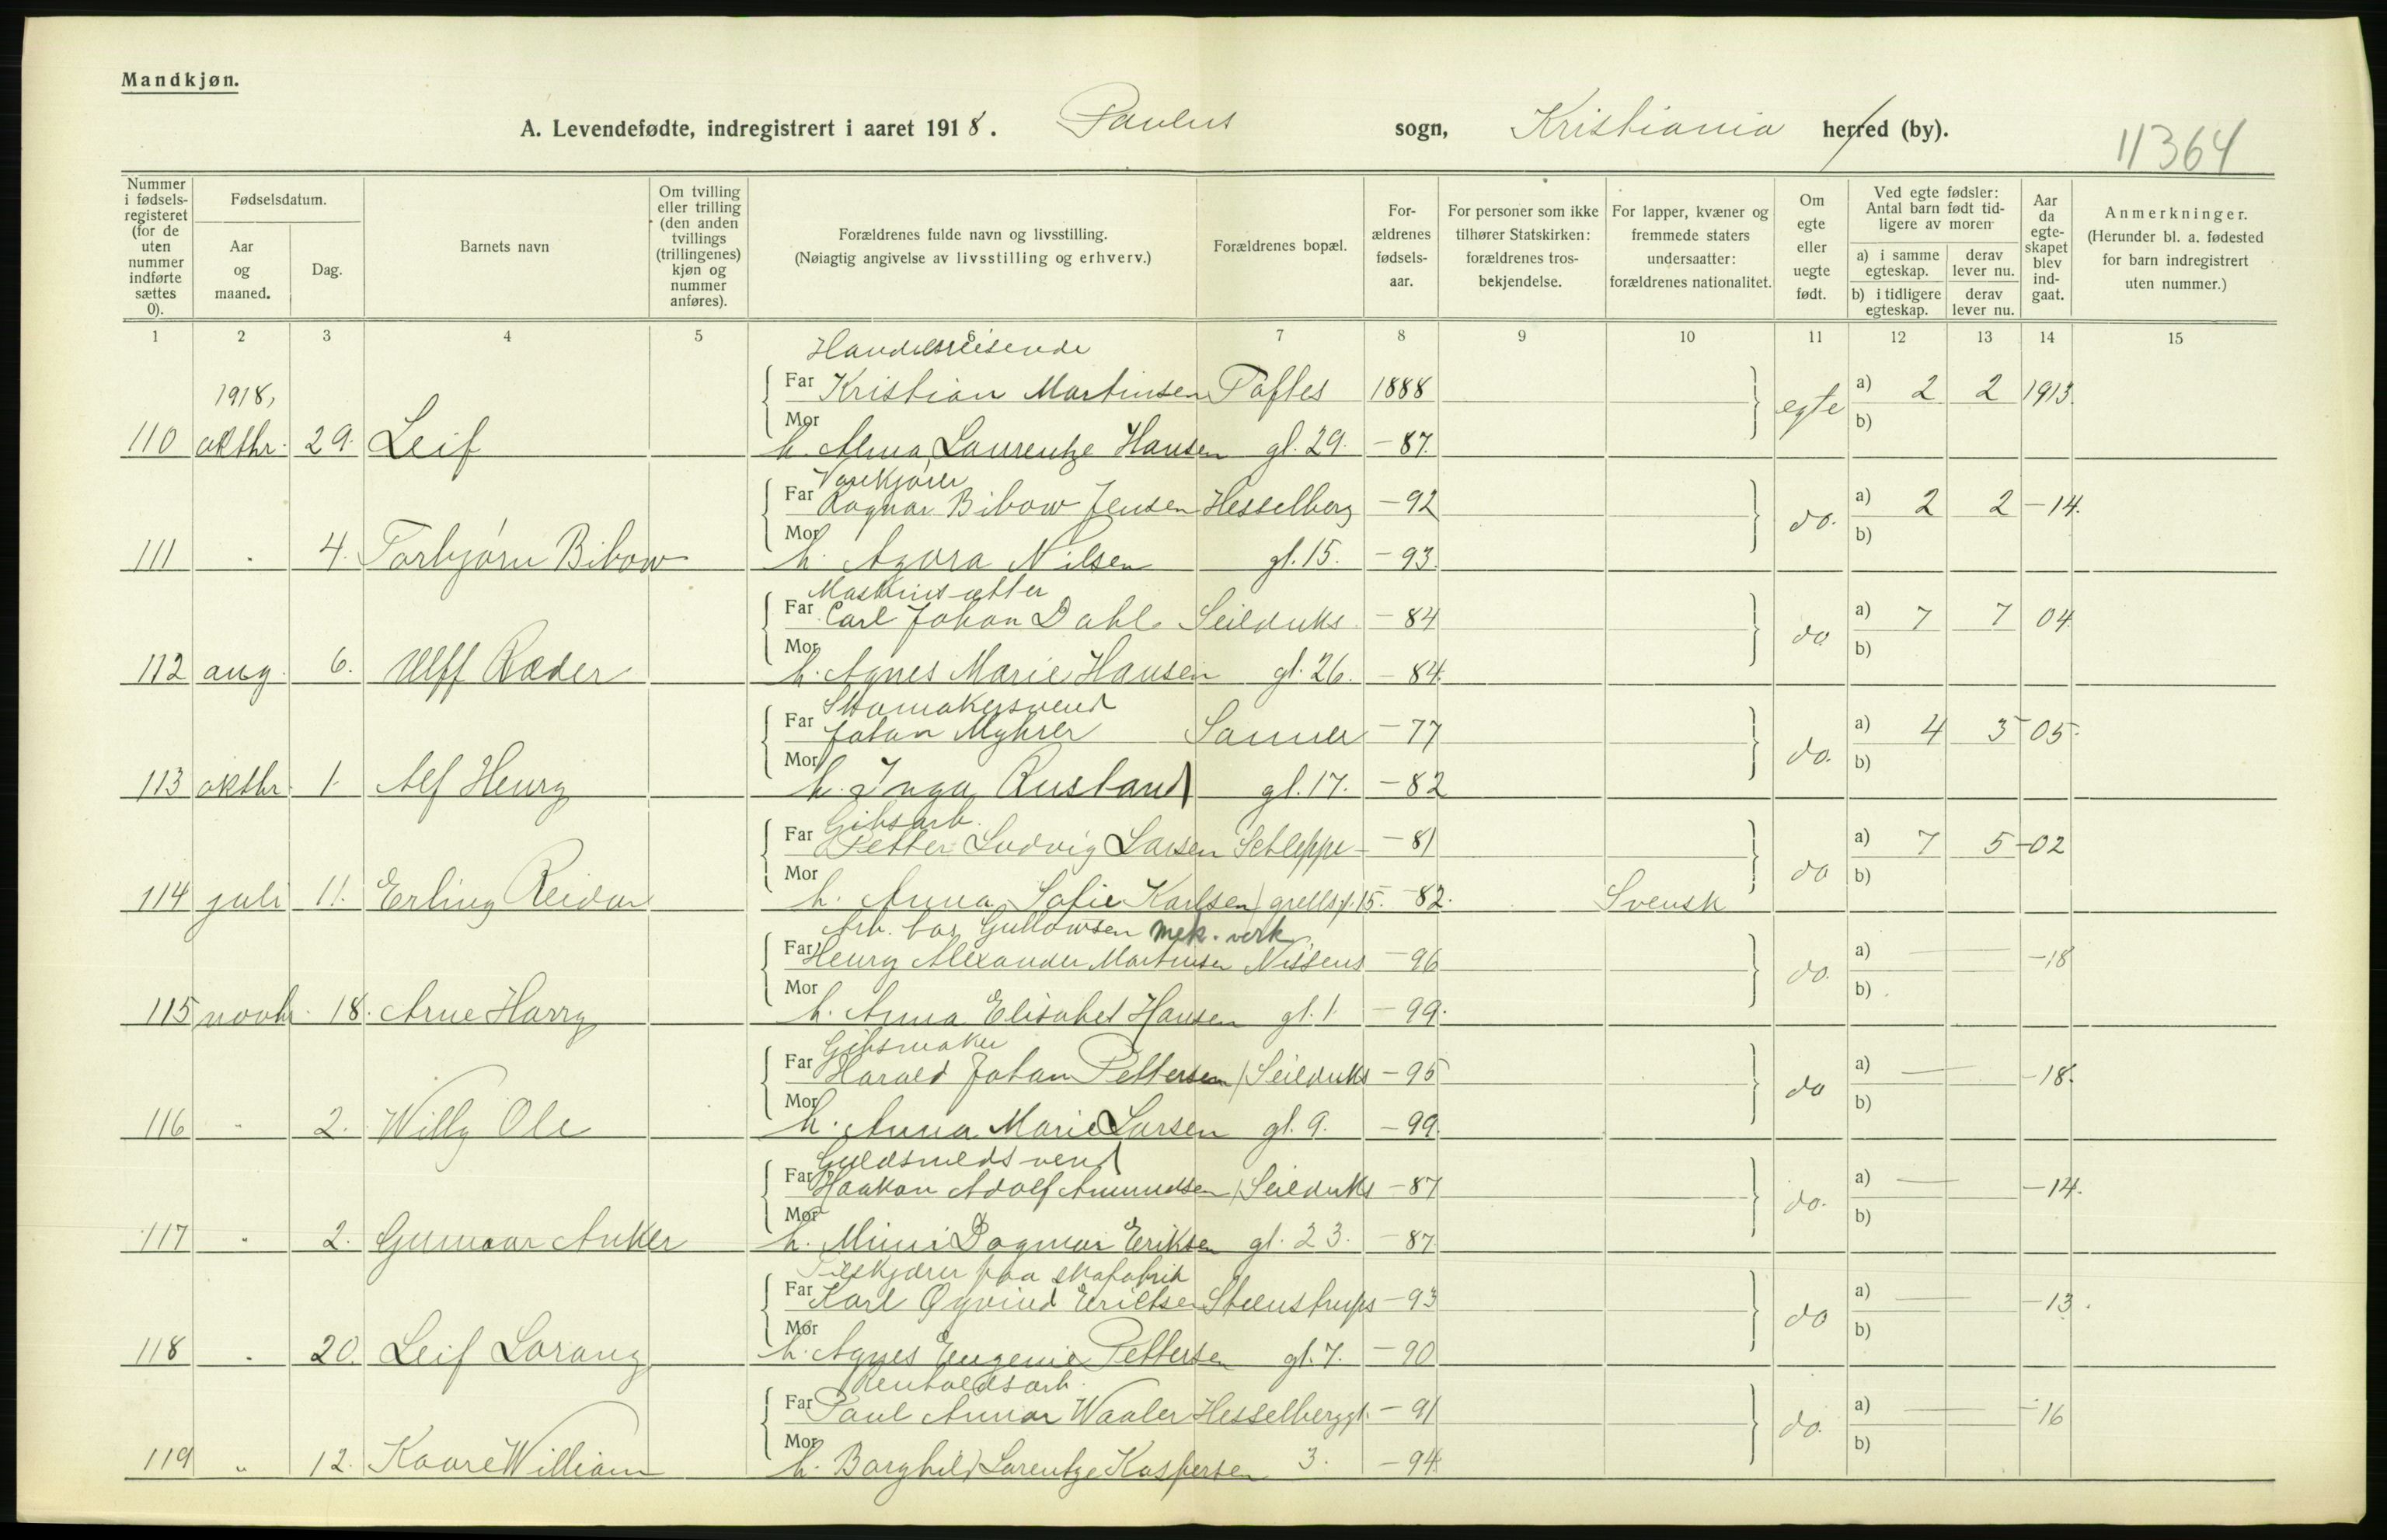 Mandkjøn.
A. Levendefødte, indregistrert i aaret 1918. Paulus sogn, Kristiania herred (by).
11364
Nummer i fødselsregisteret (for de uten nummer indførte sættes 0).
Fødselsdatum.
Aar og maaned.
Dag.
Barnets navn
Om tvilling eller trilling (den anden tvillings (trillingenes) kjøn og nummer anføres).
Forældrenes fulde navn og livsstilling.
(Nøiagtig angivelse av livsstilling og erhverv.)
Forældrenes bopæl.
Forældrenes fødselsaar.
For personer som ikke tilhører Statskirken: forældrenes trosbekjendelse.
For lapper, kvæner og fremmede staters undersaatter: forældrenes nationalitet.
Om egte eller uegte født.
Ved egte fødsler: Antal barn født tidligere av moren
a) i samme egteskap.
derav lever nu.
b) i tidligere egteskap.
derav lever nu.
Aar da egteskapet blev indgaat.
Anmerkninger.
(Herunder bl. a. fødested for barn indregistrert uten nummer.)
1 2 3 4 5 6 7 8 9 10 11 12 13 14 15
Handelsreisende
1918, Far Kristian Martinsen Toftes 1888 egte a) 2 2 1913
110 oktbr. 29. Leif Mor h. Alma Laurentze Hansen gt. 29. - 87. b)
Varekjører
Far Ragnar Bibow Jensen Hesselberg - 92 do. a) 2 2 - 14.
111 " 4. Torbjørn Bibow Mor h. Agora Nilsen gt. 15. - 93. b)
Maskinsætter
Far Carl Johan Dahl Seilduks - 84 do a) 7 7 04
112 aug. 6. Ulff Ræder Mor h. Agnes Marie Hansen gt. 26. - 84. b)
Skomakersvend
Far Johan Myhrer Sanner - 77 do. a) 4 3 05.
113 oktbr. 1. Alf Henry Mor h. Inga Rustand gt. 17. - 82 b)
Gibsarb.
Far Petter Ludvig Larsen Schleppe - 81 do a) 7 5 - 02
114 juli 11. Erling Reidar Mor h. Anna Sofie Karlsen grells gt. 15. - 82. Svensk b)
Arb. hos Gullowsen mek. verk.
Far Henry Alexander Martinsen Nissens - 96 do. a) - 18
115 novbr. 18. Arne Harry Mor h. Anna Elisabet Hansen gt. 1. - 99. b)
Gibsmaker
Far Harald Johan Pettersen Seilduks - 95 do a) - 18.
116 " 2. Willy Ole Mor h. Anna Marie Larsen gt. 9. - 99. b)
Guldsmedsvend
Far Haakon Adolf Amundsen Seilduks - 87 do. a) - 14.
117 " 2. Gunnar Anker Mor h. Mimi Dagmar Eriksen gt. 23. - 87. b)
Tilskjærer paa skofabrik
Far Karl Øyvind Erichsen Steenstrups - 93 do a) - 13.
118 " 20. Leif Lorang Mor h. Agnes Eugenie Pettersen gt. 7. - 90 b)
Renholdsarb.
Far Paul Annar Waaler Hesselberg gt. - 91 do. a) - 16
119 " 12. Kaare William Mor h. Borghild Lorentze Kaspersen 3. - 94 b)